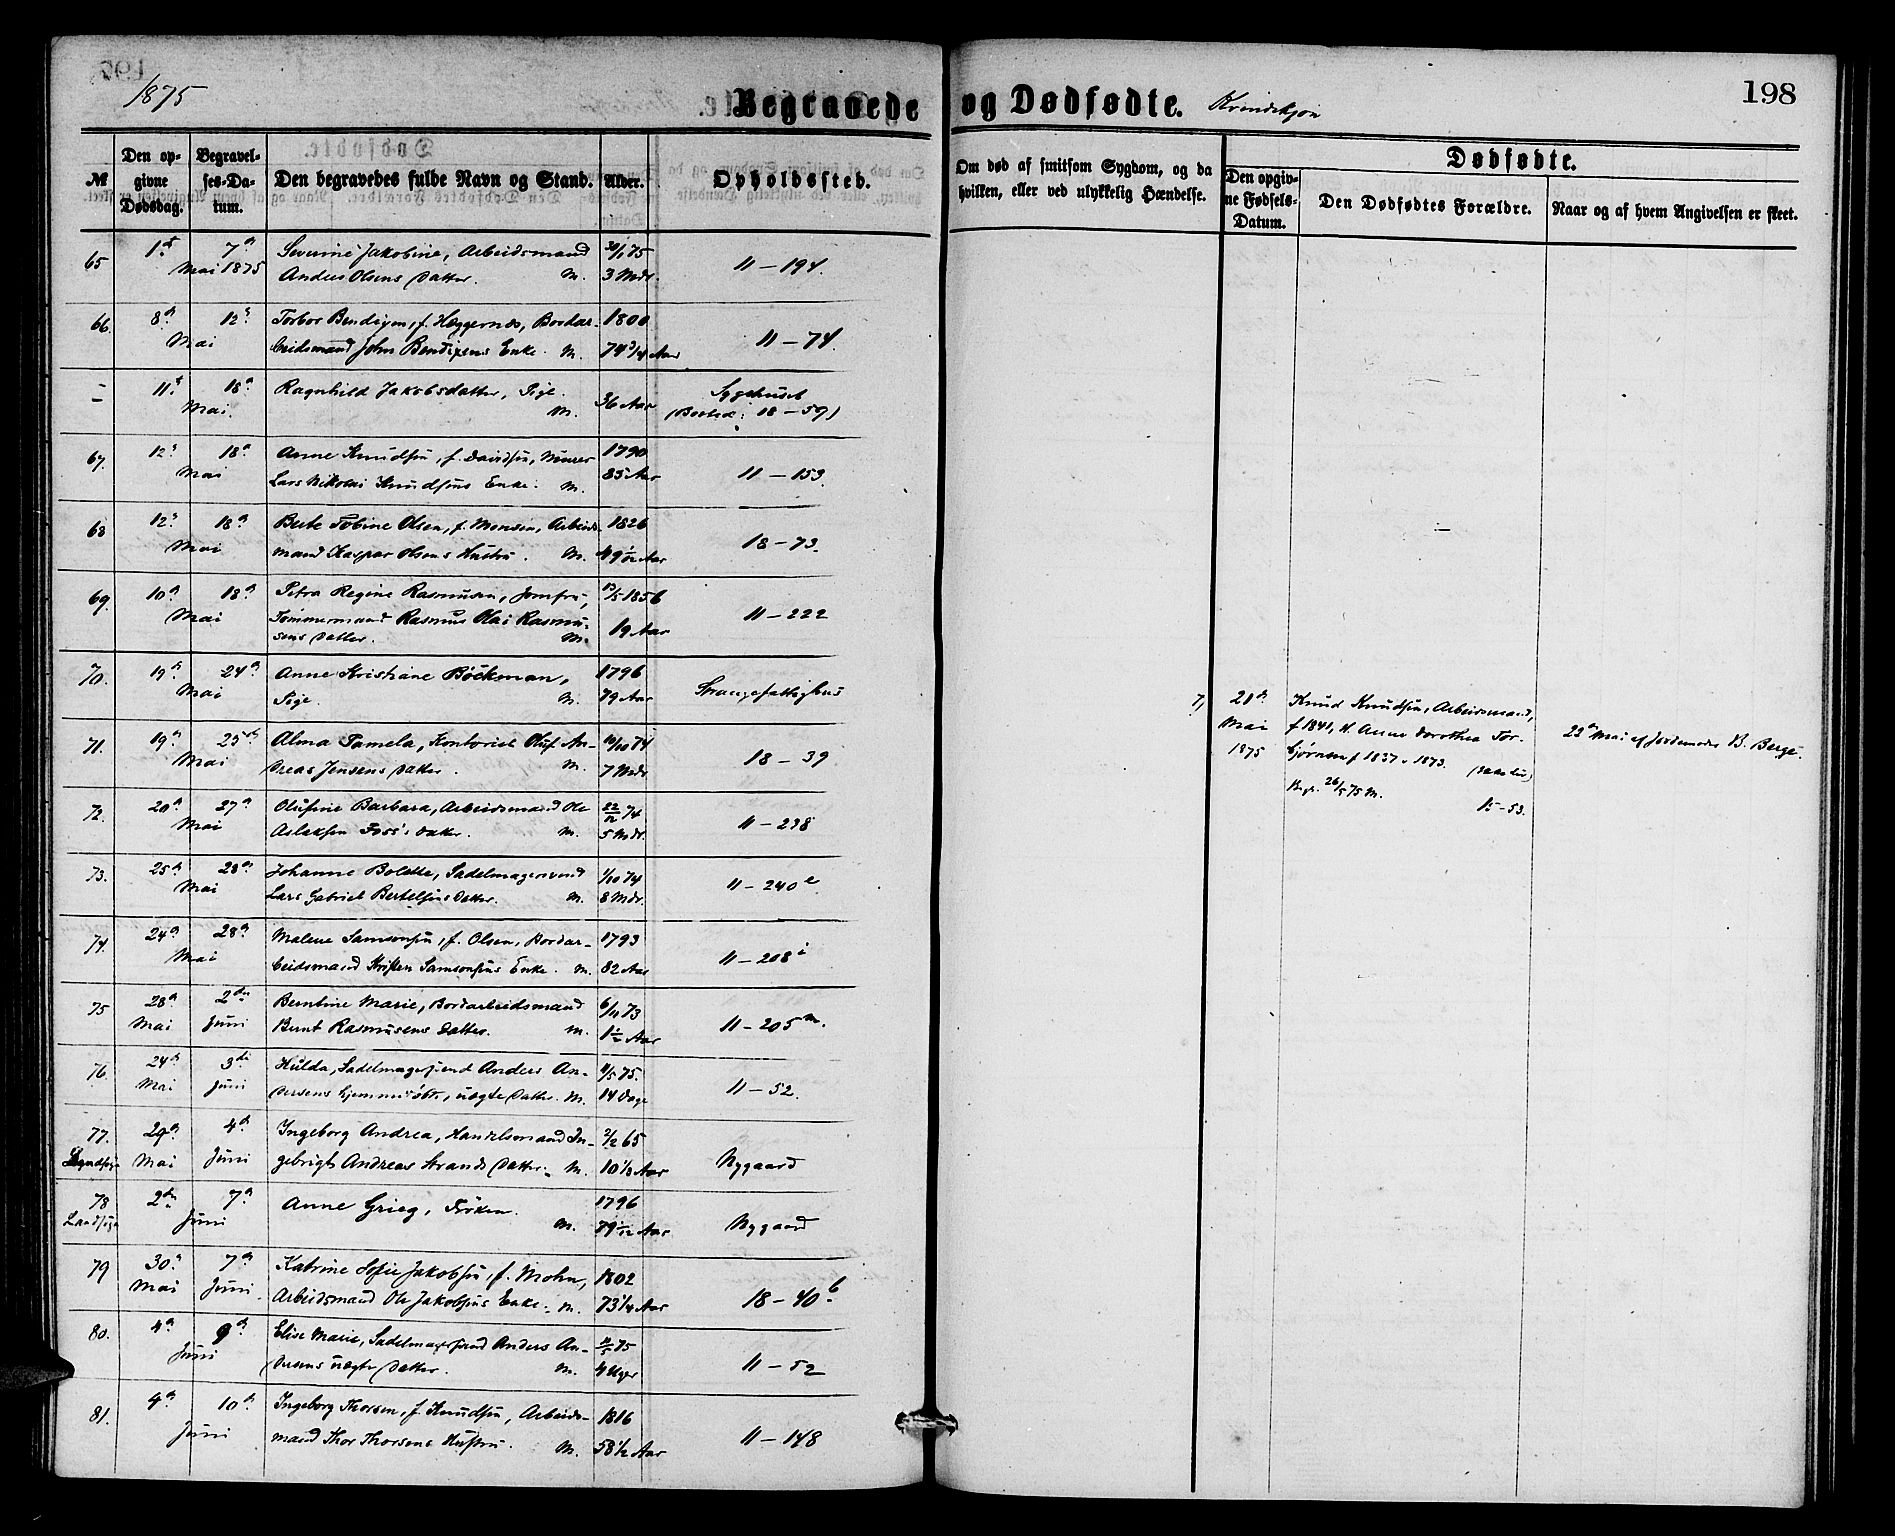 1875
Begravede og Dødfødte. Kvindekjøn
198
№
Den opgivne Dødsdag.
Begravelses-Datum.
Den begravedes fulde Navn og Stand.
Alder.
Opholdssted.
Om død af smitsom Sygdom, og da hvilken, eller ved ulykkelig Hændelse.
Dødfødte.
Den opgivne Fødsels-Datum.
Den Dødfødtes Forældre.
Naar og af hvem Angivelsen er skeet.
65 1st 7de Severine Jakobine, Arbeidsmand 30/1 75
Mai 1875 Anders Olsens Datter. M. 3 Mdr. 11 – 194.
66. 8de 12te Torbor Bendixen, f. Heggernes, Bordar- 1800
Mai beidsmand John Bendixens Enke. M. 74 3/4 Aar 11 – 74.
– 11te 18de Ragnhild Jakobsdatter, Pige. Sygehuset
Mai. M. 36 Aar (Bosted: 18 – 59)
67. 12te 18de Anne Knudsen, f. Davidsen, Murer 1790
Mai Lars Nikolai Knudsens Enke. M. 85 Aar 11 – 153.
68 12te 18de Berte Tobine Olsen, f. Monsen, Arbeids- 1826
Mai mand Kaspar Olsens Hustru. M. 49 1/12 Aar 18 – 73.
69. 10de 18de Petra Regine Rasmusen, Jomfru, 13/5 1856
Mai Tømmermand Rasmus Olai Rasmu- 19 Aar 11 – 222
sens Datter. M.
70. 19de 24de Anne Kristiane Böckman, 1796
Mai Pige. M. 79 Aar Strangefattighus
71. 19de 25de Alma Pamela, Kontorist Oluf An- 10/10 74
Mai dreas Jensens Datter. M. 7 Mdr 18 – 39
72. 20de 27de Olufine Barbara, Arbeidsmand Ole 22/12 74
Mai Aslaksen Foss's Datter. M. 5 Mdr. 11 – 238
73. 25de 28de Johanne Bolette, Sadelmagersvend 1/10 74
Mai Lars Gabriel Bertelsens Datter. M. 8 Mdr. 11 – 240 e
74. 24de 28de Malene Samsonsen, f. Olsen, Bordar- 1793
Mai beidsmand Kristen Samsonsens Enke. M. 82 Aar 11 – 208 i
75 28de 2den Berntine Marie, Bordarbeidsmand 6/11 73
Mai Juni Bernt Rasmusens Datter. M. 1 1/2 Aar 11 – 205 m.
76. 24de 3die Hulda, Sadelmagersvend Anders An- 11/5 75.
Mai Juni dersens hjemmedøbte, uægte Datter. M. 14 Dage 11 – 52.
77. 29de 4de Ingeborg Andrea, Handelsmand In- 2/2 65
Landsogn Mai Juni gebrigt Andreas Strands Datter. M. 10 1/3 Aar Nygaard
78 2den 7de Anne Grieg, Frøken. 1796
Landsogn Juni M. 79 1/12 Aar Nygaard
79 30te 7de Katrine Sofie Jakobsen, f. Mohn, 1802
Mai Juni. Arbeidsmand Ole Jakobsens Enke. M. 73 1/4 Aar 18 – 40 b
80. 4de 9de Elise Marie, Sadelmagersvend Anders An- 11/5 75
Juni dersens uægte Datter. M. 4 Uger 11 – 52
81. 4de 10de Ingeborg Thorsen, f. Knudsen, Arbeids- 1816
Juni mand Thor Thorsens Hustru. M. 58 1/2 Aar 11 – 148
7, 21de Knud Knudsen, Arbeidsmand,
Mai f 1841, H. Anne Dorothea Tor- 22de Mai af Jordemoder B. Berge.
1875 bjørnsen f 1837 v 1873.
Begr. 26/5 75 M. 15 – 53.